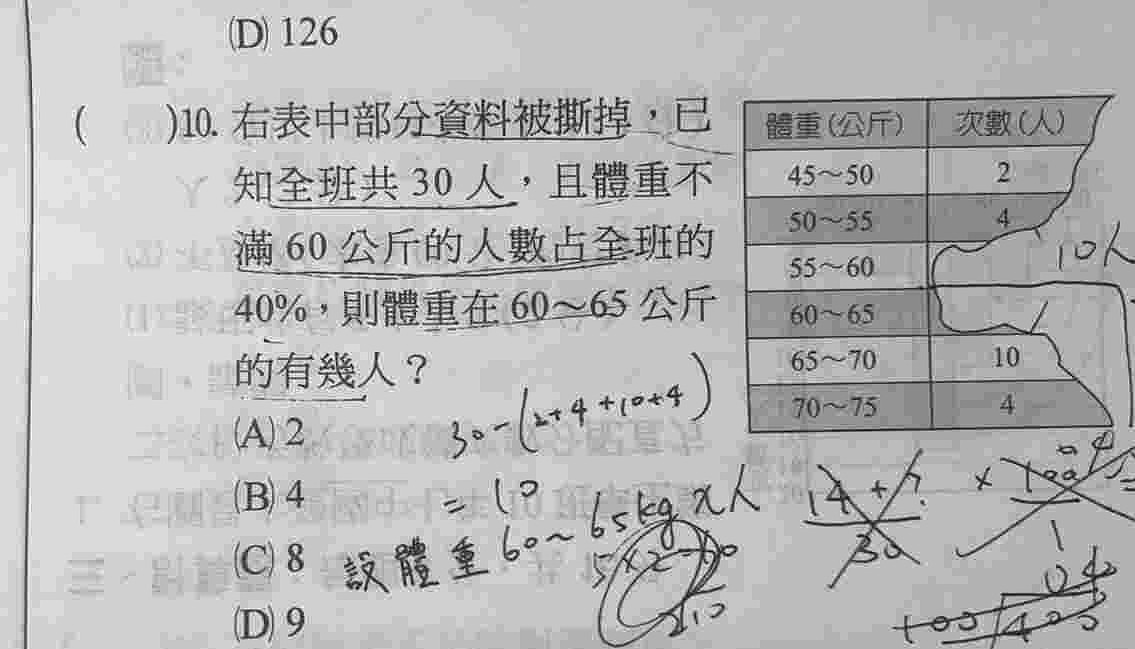 (D) 126
( )10. 右表中部分資料被撕掉，已
知全班共 30 人，且體重不
滿 60 公斤的人數占全班的
40%，則體重在 60～65 公斤
的有幾人？
(A) 2
(B) 4
(C) 8
(D) 9
體重(公斤) 次數(人)
45～50 2
50～55 4
55～60
60～65
65～70 10
70～75 4
10人
30-(2+4+10+4)
=10
設體重 60～65kg x人
14+?
30